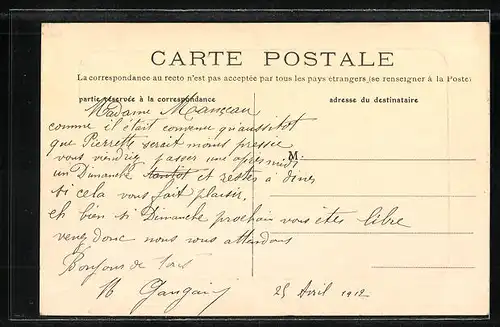 CARTE POSTALE
La correspondance au recto n'est pas acceptée par tous les pays étrangers (se renseigner à la Poste)
partie réservée à la correspondance
adresse du destinataire
Madame Manceau
comme il était convenue qu'aussitot
que Pierrette serait moins pressée
vous vendriez passer une apres midi
M.
un Dimanche tantot et restez à diner
si cela vous fait plaisir.
eh bien si Dimanche prochain vous êtes libre
venez donc nous vous attendons
Bonjour de tous
25 Avril 1912